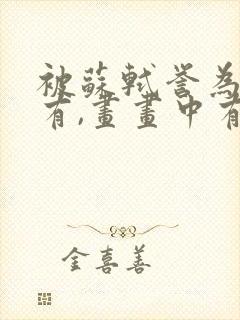 被蘇軾誉為
有,畫畫中有
金喜善